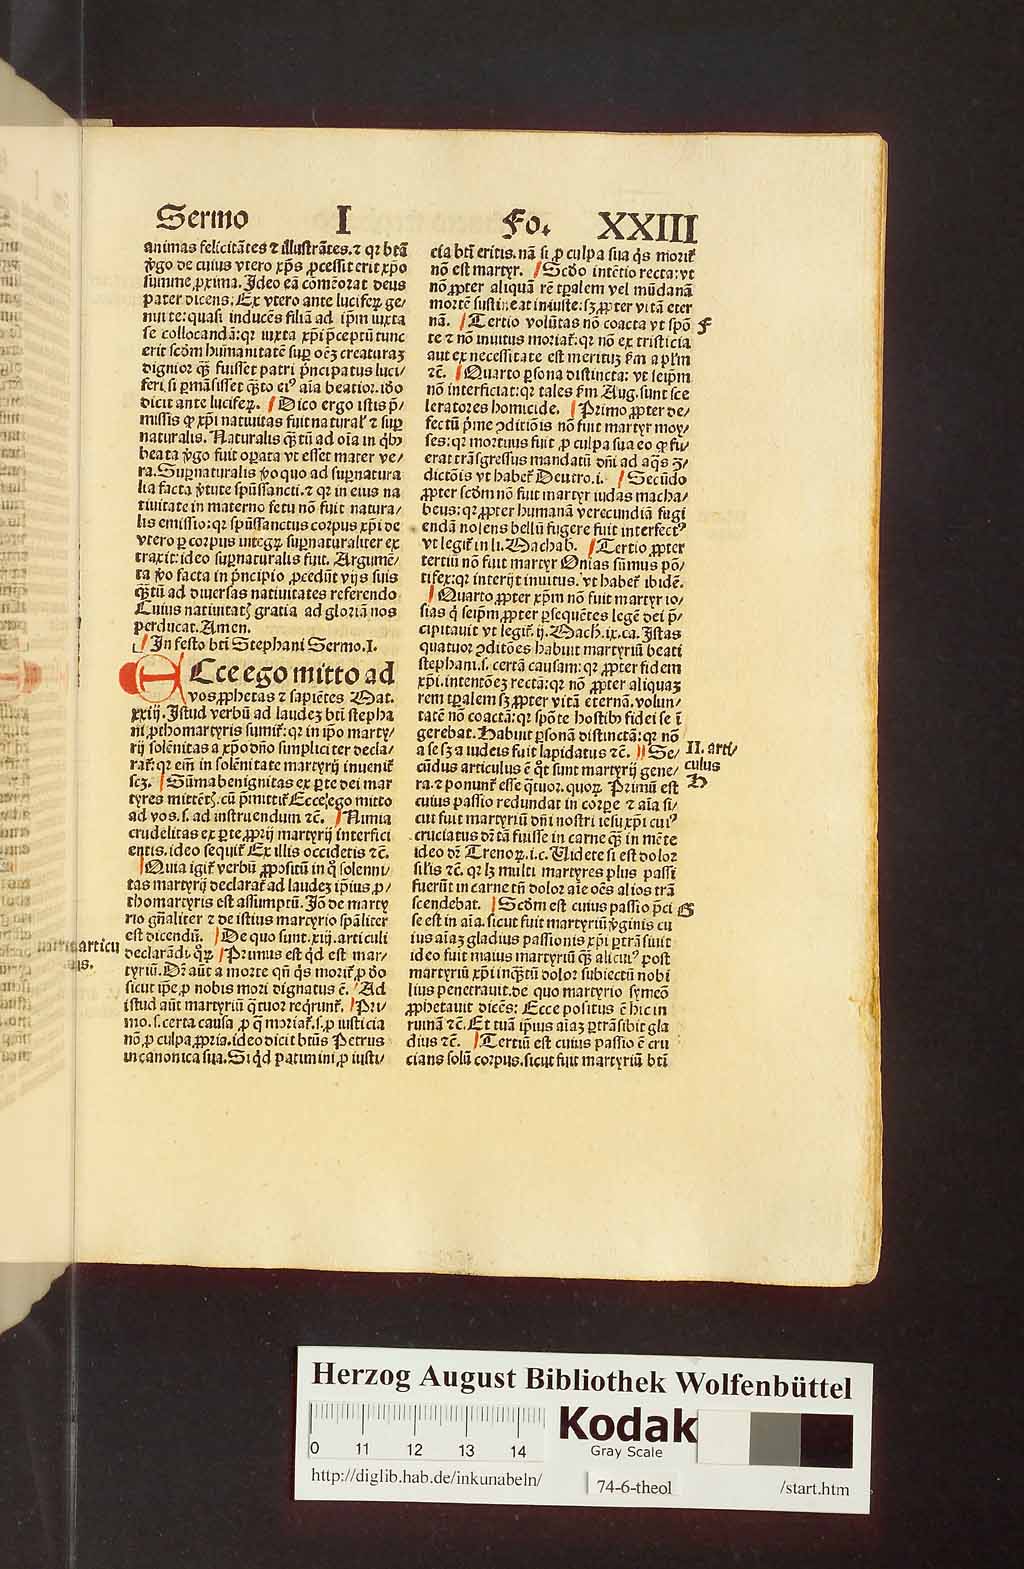 Sermo I Fo. XXIII
animas felicitātes ⁊ illustrātes. ⁊ qꝛ btā
v̓go de cuius vtero xp̄s ꝓcessit erit xp̄o
summe ꝓxima. Ideo eā comēorat deus
pater dicens. Ex vtero ante luciferꝝ ge/
nui te: quasi inducēs filiā ad ip̄m iuxta
se collocandā: qꝛ iuxta xp̄i p̄ceptū tunc
erit scd̄m humanitatē suꝑ oēꝫ creaturaꝫ
dignior qꝫ̄ fuisset patri p̄ncipatus luci/
feri. si ꝑmāsisset qꝫ̄to eiꝰ aīa beatior. iō
dicit ante luciferꝝ. Dico ergo istis p̄/
missis ꝙ xp̄i natiuitas fuit natural' ⁊ suꝑ
naturalis. Naturalis qꝫ̄tū ad oīa in qͥbꝰ
beata v̓go fuit oꝑata vt esset mater ve/
ra. Suꝑnaturalis v̓o quo ad suꝑnatura
lia facta v̓tute spūssancti. ⁊ qꝛ in eius na
tiuitate in materno fetu nō fuit natura/
lis emissio: qꝛ spūssanctus corpus xp̄i de
vtero ꝑ corpus integꝝ suꝑnaturaliter ex
traxit: ideo suꝑnaturalis fuit. Argumē/
ta v̓o facta in p̄ncipio ꝓcedūt vijs suis
qꝫ̄tū ad diuersas natiuitates referendo
Cuius natiuitatꝭ gratia ad gloriā nos
perducat. Amen.
In festo bti Stephani Sermo. I.
Ecce ego mitto ad
vos ꝓphetas ⁊ sapiētes Mat.
xxiij. Istud verbū ad laudeꝫ bti stepha
ni ꝓthomartyris sumit᷑: qꝛ in ip̄o marty/
rij solēnitas a xp̄o dn̄o simpliciter decla/
rat᷑: qꝛ em̄ in solēnitate martyrij inuenit᷑
scꝫ. Sūma benignitas ex ꝑte dei mar
tyres mittētꝭ. cū p̄mittit᷑ Ecce ego mitto
ad vos. s. ad instruendum ⁊c. Nimia
crudelitas ex ꝑte ꝓprij martyrij interfici
entis. ideo sequit᷑ Ex illis occidetis ⁊c.
Quia igit᷑ verbū ꝓpositū in qͦ solenni/
tas martyrij declarat᷑ ad laudeꝫ ip̄ius ꝓ/
thomartyris est assumptū. Iō de marty
rio gn̄aliter ⁊ de istius martyrio spāliter
est dicendū. De quo sunt. xij. articuli
declarādi. qͦꝝ Primus est qͥd est mar/
tyriū. Dr̄ aūt a morte qn̄ qͥs morit᷑ ꝓ deo
sicut ip̄e ꝓ nobis mori dignatus ē. Ad
istud aūt martyriū qͣtuor reqͥrunt᷑. Pri/
mo. s. certa causa ꝓ qͣ moriat᷑. s. ꝓ iusticia
nō ꝓ culpa ꝓpria. ideo dicit btūs Petrus
in canonica sua. Si qͥd patimini ꝓ iusti/
articu
cia bti eritis. nā si ꝓ culpa sua qͥs morit᷑
nō est martyr. Scd̄o intētio recta: vt
nō ꝓpter aliquā rē tꝑalem vel mūdanā
mortē sustineat iniuste: sꝫ ꝓpter vitā eter
nā. Tertio volūtas nō coacta vt spō
te ⁊ nō inuitus moriat᷑: qꝛ nō ex tristicia
aut ex necessitate est meritūꝫ ẜm apl̄m
⁊c. Quarto ꝑsona distincta: vt seip̄m
nō interficiat: qꝛ tales ẜm Aug. sunt sce
leratores homicide. Primo ꝓpter de/
fectū p̄me ꝯditiōis nō fuit martyr moy/
ses: qꝛ mortuus fuit ꝓ culpa sua eo ꝙ fu/
erat trāsgressus mandatū dn̄i ad aqͣs ꝯ/
dictōis vt habet᷑ Deutro. i. Secūdo
ꝓpter scd̄m nō fuit martyr iudas macha/
beus: qꝛ ꝓpter humanā verecundiā fugi
endā nolens bellū fugere fuit interfectꝰ
vt legit᷑ in li. Machab. Tertio ꝓpter
tertiū nō fuit martyr Onias sūmus pō/
tifex: qꝛ interijt inuitus. vt habet᷑ ibidē.
Quarto ꝓpter xp̄m nō fuit martyr io/
sias qͥ seip̄m ꝓpter ꝑsequētes legē dei p̄/
cipitauit vt legit᷑. ij. Mach. ix. ca. Istas
quatuor ꝯditōes habuit martyriū beati
stephani. s. certā causam: qꝛ ꝓpter fidem
xp̄i. intentōeꝫ rectā: qꝛ nō ꝓpter aliquaꝫ
rem tꝑalem sꝫ ꝓpter vitā eternā. volun/
tatē nō coactā: qꝛ spōte hostibꝰ fidei se ī
gerebat. Habuit ꝑsonā distinctā: qꝛ nō
a se sꝫ a iudeis fuit lapidatus ⁊c. Se/
cūdus articulus ē qͦt sunt martyrij gene/
ra. ⁊ ponunt᷑ esse qͣtuor. quoꝝ Primū est
cuius passio redundat in corꝑe ⁊ aīa si/
cut fuit martyriū dn̄i nostri iesu xp̄i cuiꝰ
cruciatus dr̄ tā fuisse in carne qꝫ̄ in mēte
ideo dr̄ Trenoꝝ. i. c. Uidete si est dolor
sil̄is ⁊c. qꝛ lꝫ multi martyres plus passi
fuerūt in carne tn̄ dolor aīe oēs alios trā
scendebat. Scd̄m est cuius passio p̄ci
se est in aīa. sicut fuit martyriū v̓ginis cu
ius aīaꝫ gladius passionis xp̄i ꝑtrāsiuit
ideo fuit maius martyriū qꝫ̄ alicuiꝰ post
martyriū xp̄i inqꝫ̄tū dolor subiectū nobi
lius penetrauit. de quo martyrio symeō
ꝓphetauit dicēs: Ecce positus ē hic in
ruinā ⁊c. Et tuā ip̄ius aīaꝫ ꝑtrāsibit gla
dius ⁊c. Tertiū est cuius passio ē cru
cians solū corpus. sicut fuit martyriū bti
F
II. arti/
culus
H
G
Herzog August Bibliothek Wolfenbüttel
Kodak
Gray Scale
0 11 12 13 14
http://diglib.hab.de/inkunabeln/ 74-6-theol /start.htm